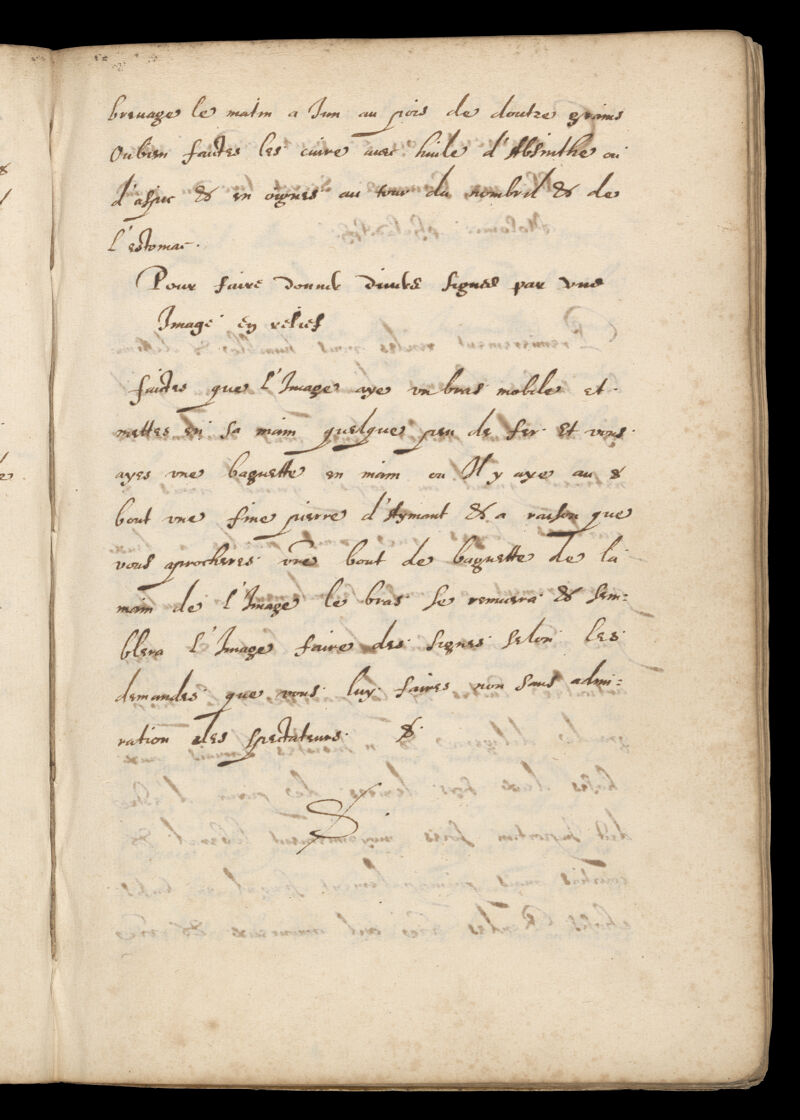 breuage le matin a Jun au pois de doutze grains
Oubien faictes les cuire auec huile d'Absinthe ou
d'aspic & en oignes au tour du nombril & de
L'estomac.
Pour faire donner diuers signes par vne
Image en relief
faictes que L'Image aye vn bras mobile et
mettes en sa main quelque peu de fer. Et vous
ayes vne baguette en main ou Il y aye au
bout vne fine pierre d'Aymant & a raison que
vous aprocheres vre bout de baguette de la
main de L'Image le bras se remuera & sem:
blera L'Image faire des signes selon les
demandes que vous luy faires non sans admi:
ration des spectateurs. &.